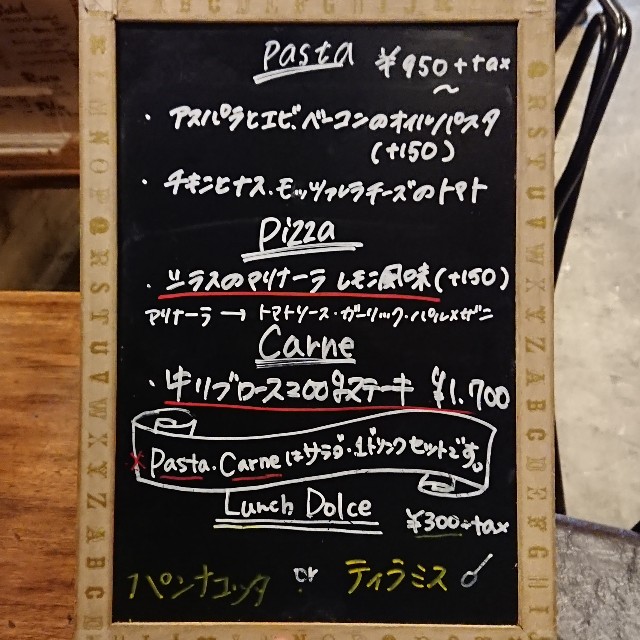 Pasta ¥950+tax
〜
・アスパラとエビ、ベーコンのオイルパスタ
(+150)
・チキンとナス、モッツァレラチーズのトマト
Pizza
・シラスのマリナーラ レモン風味(+150)
マリナーラ → トマトソース・ガーリック・パルメザン
Carne
・牛リブロース200gステーキ ¥1,700
* Pasta・Carneはサラダ・1ドリンクセットです。
Lunch Dolce
¥300+tax
パンナコッタ or ティラミス